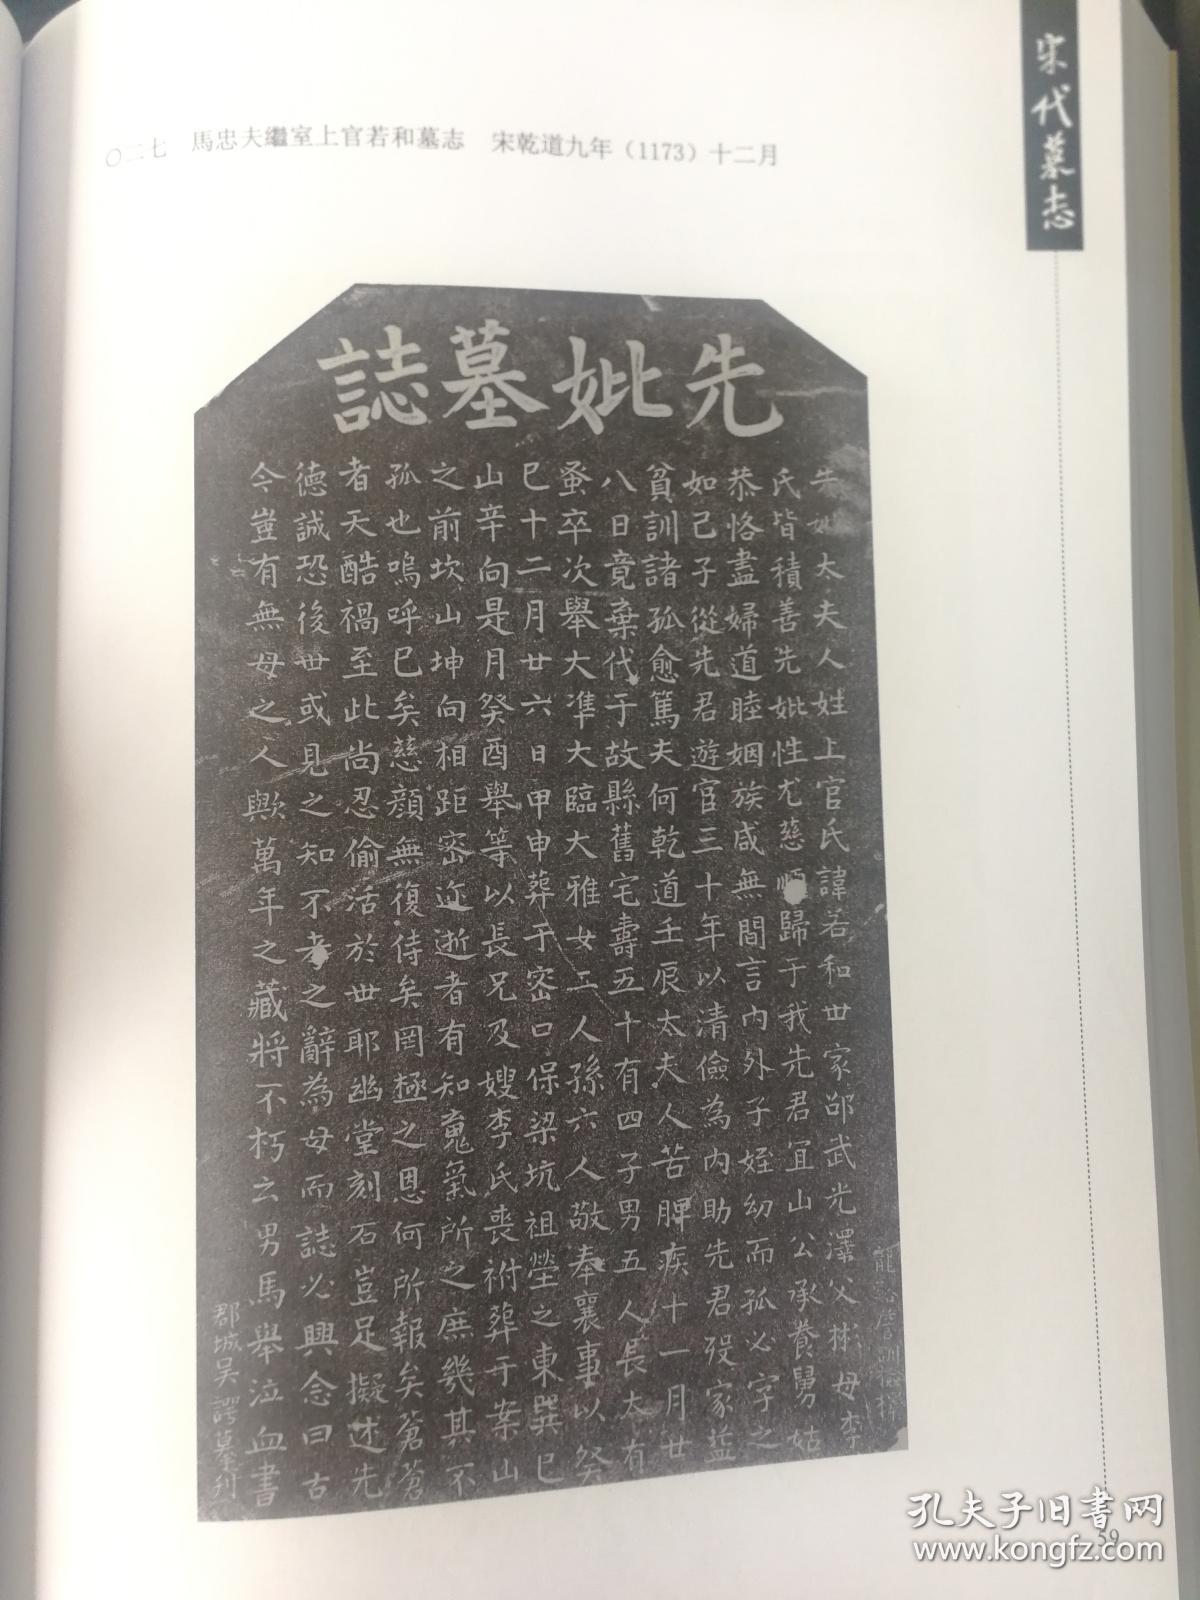 宋代墓志
〇二七 馬忠夫繼室上官若和墓志 宋乾道九年（1173）十二月
先妣墓誌
先妣太夫人姓上官氏諱若和世家邵武光澤父彬母李
氏皆積善先妣性尤慈順歸于我先君宜山公承養舅姑
恭恪盡婦道睦姻族咸無間言內外子姪幼而孤必字之
如己子從先君遊官三十年以清儉為內助先君歿家益
貧訓諸孤愈篤夫何乾道壬辰太夫人苦脾疾十一月廿
八日竟棄代于故縣舊宅壽五十有四子男五人長大有
蚤卒次舉大準大臨大雅女二人孫六人敬奉襄事以癸
巳十二月廿六日甲申葬于密口保梁坑祖塋之東巽巳
山辛向是月癸酉舉等以長兄及嫂李氏喪祔葬于案山
之前坎山坤向相距密迩逝者有知䰟氣所之庶幾其不
孤也嗚呼已矣慈顏無復侍矣罔極之恩何所報矣蒼蒼
者天酷禍至此尚忍偷活於世耶幽堂刻石豈足擬述先
德誠恐後世或見之知不孝之辭為母而誌必興念曰古
今豈有無母之人歟萬年之藏將不朽云男馬舉泣血書
郡城吳諤摹刊
孔夫子旧书网
www.kongfz.com
59